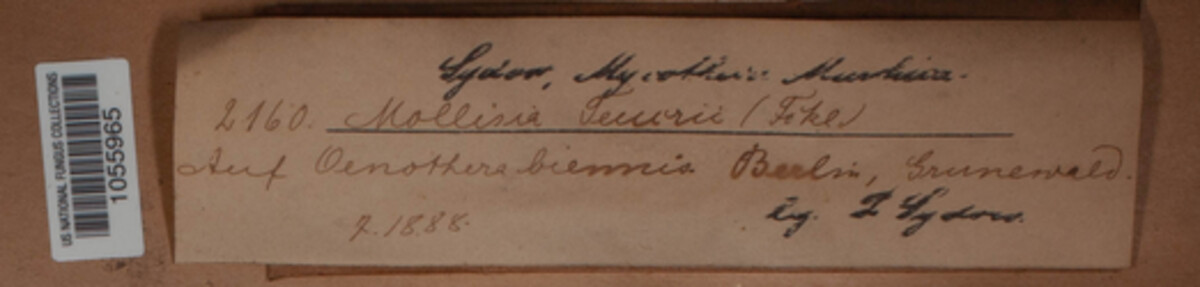 US NATIONAL FUNGUS COLLECTIONS
1055965
Sydow, Mycotheca Marchica.
2160. Mollisia Teucrii (Fckl)
Auf Oenothera biennis. Berlin, Grunewald.
7.1888.
leg. P Sydow.